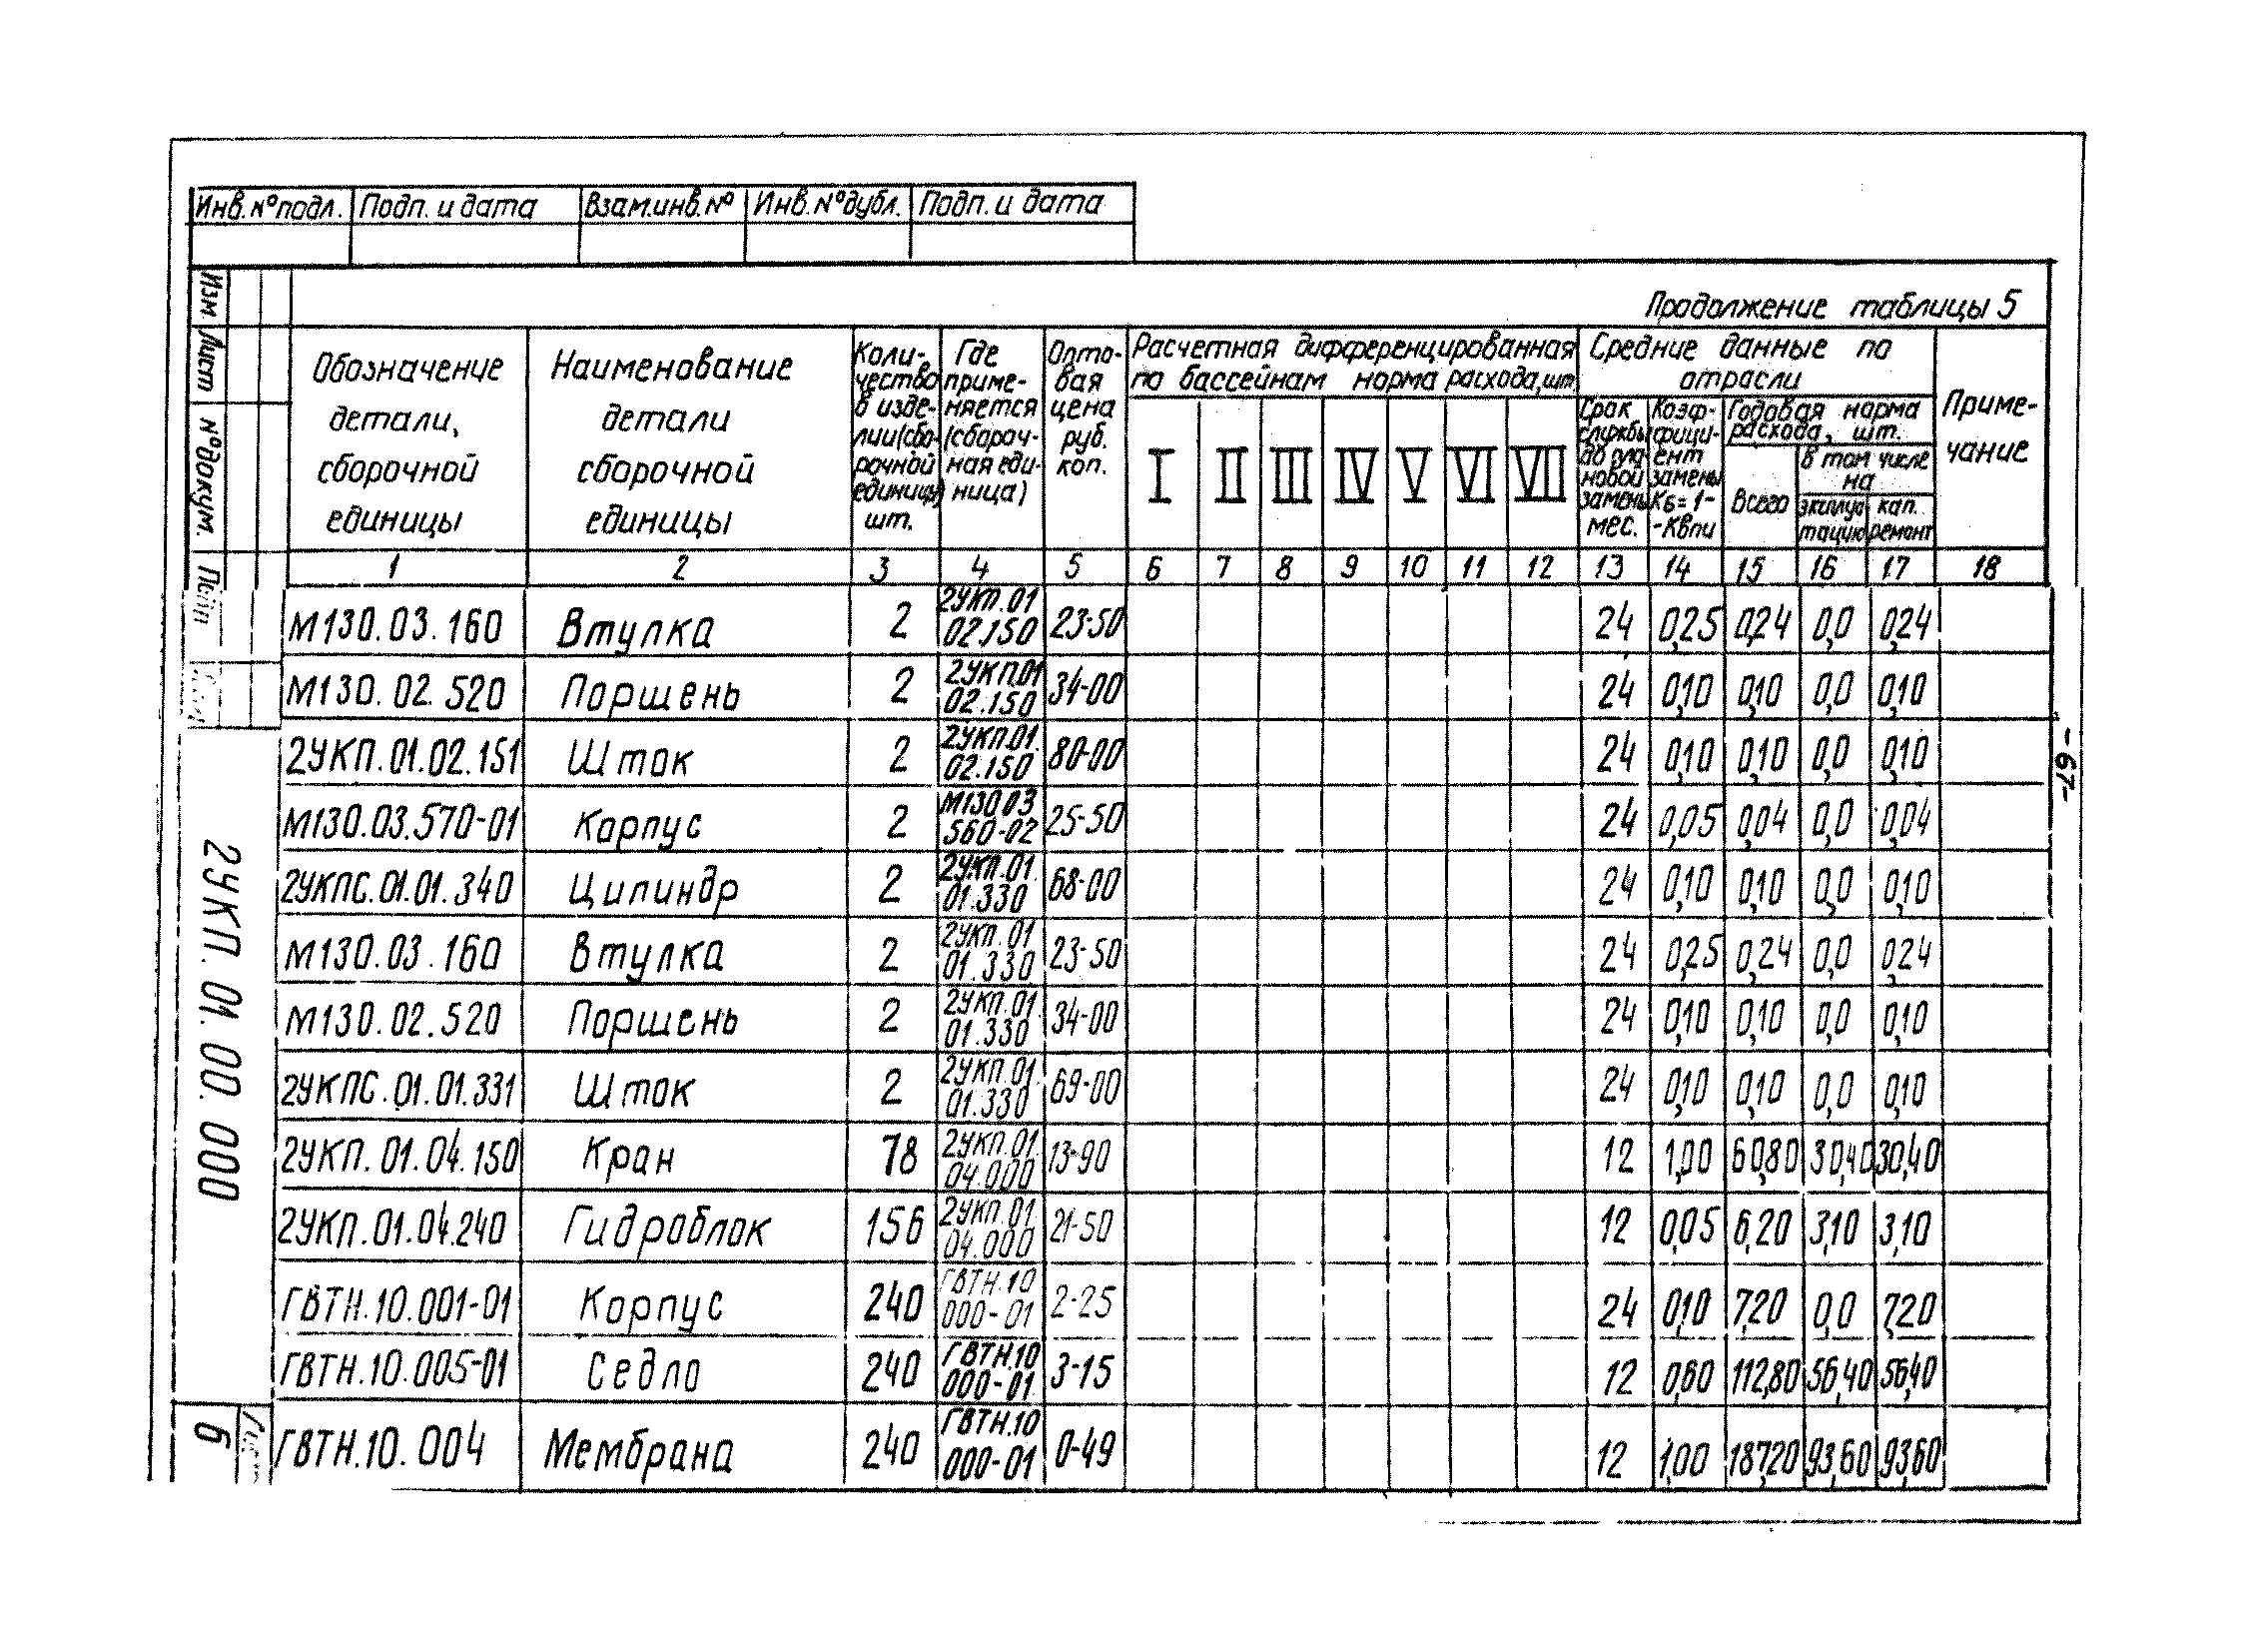 Инв.№подл. Подп. и дата Взам.инв.№ Инв.№дубл. Подп. и дата
Продолжение таблицы 5
Обозначение детали, сборочной единицы
Наименование детали сборочной единицы
Количество в изделии(сборочной единицы) шт.
Где применяется (сборочная единица)
Оптовая цена руб. коп.
Расчетная дифференцированная по бассейнам норма расхода, шт.
I II III IV V VI VII
Средние данные по отрасли
Срок службы до плановой замены мес.
Коэффициент замены Кб=1--Квпи
Годовая норма расхода, шт.
Всего
в том числе на
эксплуатацию
кап. ремонт
Примечание
1 2 3 4 5 6 7 8 9 10 11 12 13 14 15 16 17 18
М130.03.160 Втулка 2 2УКП.01 02.150 23-50 24 0,25 0,24 0,0 0,24
М130.02.520 Поршень 2 2УКП.01 02.150 34-00 24 0,10 0,10 0,0 0,10
2УКП.01.02.151 Шток 2 2УКП.01. 02.150 80-00 24 0,10 0,10 0,0 0,10
М130.03.570-01 Корпус 2 М130.03 560-02 25-50 24 0,05 0,04 0,0 0,04
2УКПС.01.01.340 Цилиндр 2 2УКП.01. 01.330 68-00 24 0,10 0,10 0,0 0,10
М130.03.160 Втулка 2 2УКП.01 01.330 23-50 24 0,25 0,24 0,0 0,24
М130.02.520 Поршень 2 2УКП.01. 01.330 34-00 24 0,10 0,10 0,0 0,10
2УКПС.01.01.331 Шток 2 2УКП.01. 01.330 69-00 24 0,10 0,10 0,0 0,10
2УКП.01.04.150 Кран 78 2УКП.01. 04.000 13-90 12 1,00 60,80 30,40 30,40
2УКП.01.04.240 Гидроблок 156 2УКП.01. 04.000 21-50 12 0,05 6,20 3,10 3,10
ГВТН.10.001-01 Корпус 240 ГВТН.10 000-01 2-25 24 0,10 7,20 0,0 7,20
ГВТН.10.005-01 Седло 240 ГВТН.10 000-01 3-15 12 0,60 112,80 56,40 56,40
ГВТН.10.004 Мембрана 240 ГВТН.10 000-01 0-49 12 1,00 187,20 93,60 93,60
Изм. Лист №докум.
2УКП.01.00.000
6
-67-